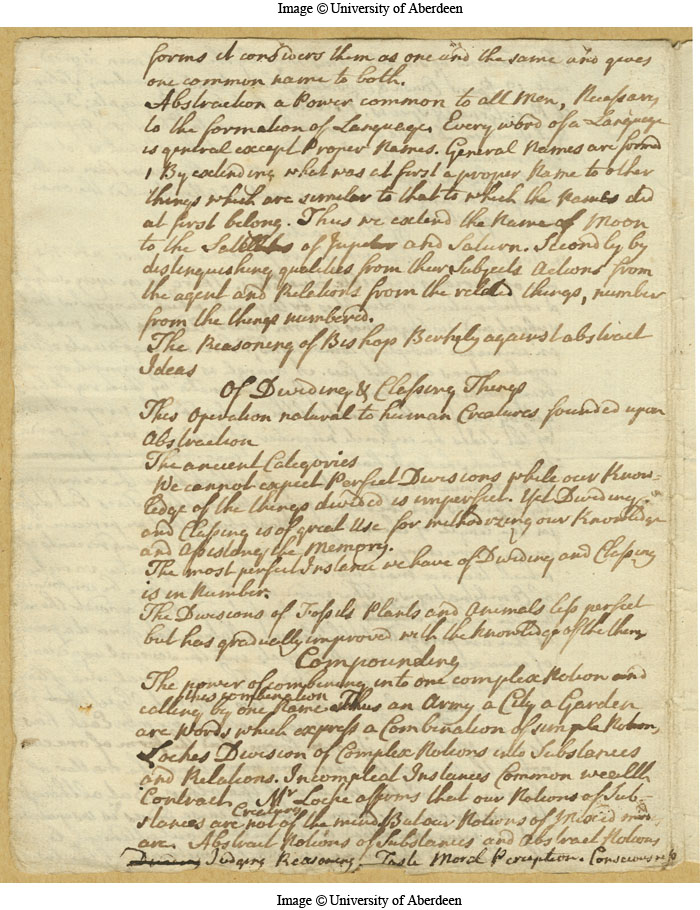 Image © University of Aberdeen
forms it considers them as one and the same and gives
one common name to both.
Abstraction a Power common to all Men, Necessary
to the formation of Language. Every word of a Language
is general except Proper Names. General Names are formed
1 By extending what was at first a proper Name to other
things which are similar to that to which the Names did
at first belong. Thus we extend the Name of Moon
to the Satellites of Jupiter and Saturn. Secondly by
distinguishing qualities from their Subjects Actions from
the agent and Relations from the related things, number
from the things numbered.
The Reasoning of Bishop Berkely against abstract
Ideas
Of Dividing & Classing Things
This Operation natural to human Creatures founded upon
Abstraction
The ancient Categories
We cannot expect Perfect Divisions while our Know-
ledge of the things divided is imperfect. Yet Dividing
and Classing is of great Use for methodizing our Knowledge
and Assisting the Memory.
The most perfect Instance we have of Dividing and Classing
is in Number.
The Divisions of Fossils Plants and Animals less perfect
but has gradually improved with the Knowledge of the
Compounding
The power of combining into one complex Notion and
this combination
calling by one Name Thus an Army a City a Garden
are Words which express a Combination of simple Notions
Lockes Division of Complex Notions into Substances
and Relations. Incompleat Instances Common wealth
Contract Mr Locke affirms that our Notions of Sub-
Creatures
stances are not of the mind But our Notions of Mixed
are. Abstract Notions of Substances and Abstract Notions
Judging Reasoning Taste Moral Perception. Consciousness
Image © University of Aberdeen